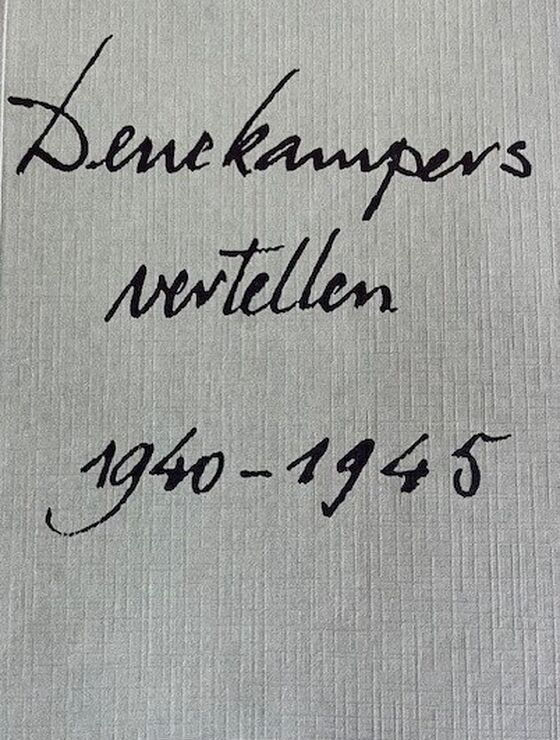 Denekampers
vertellen
1940-1945